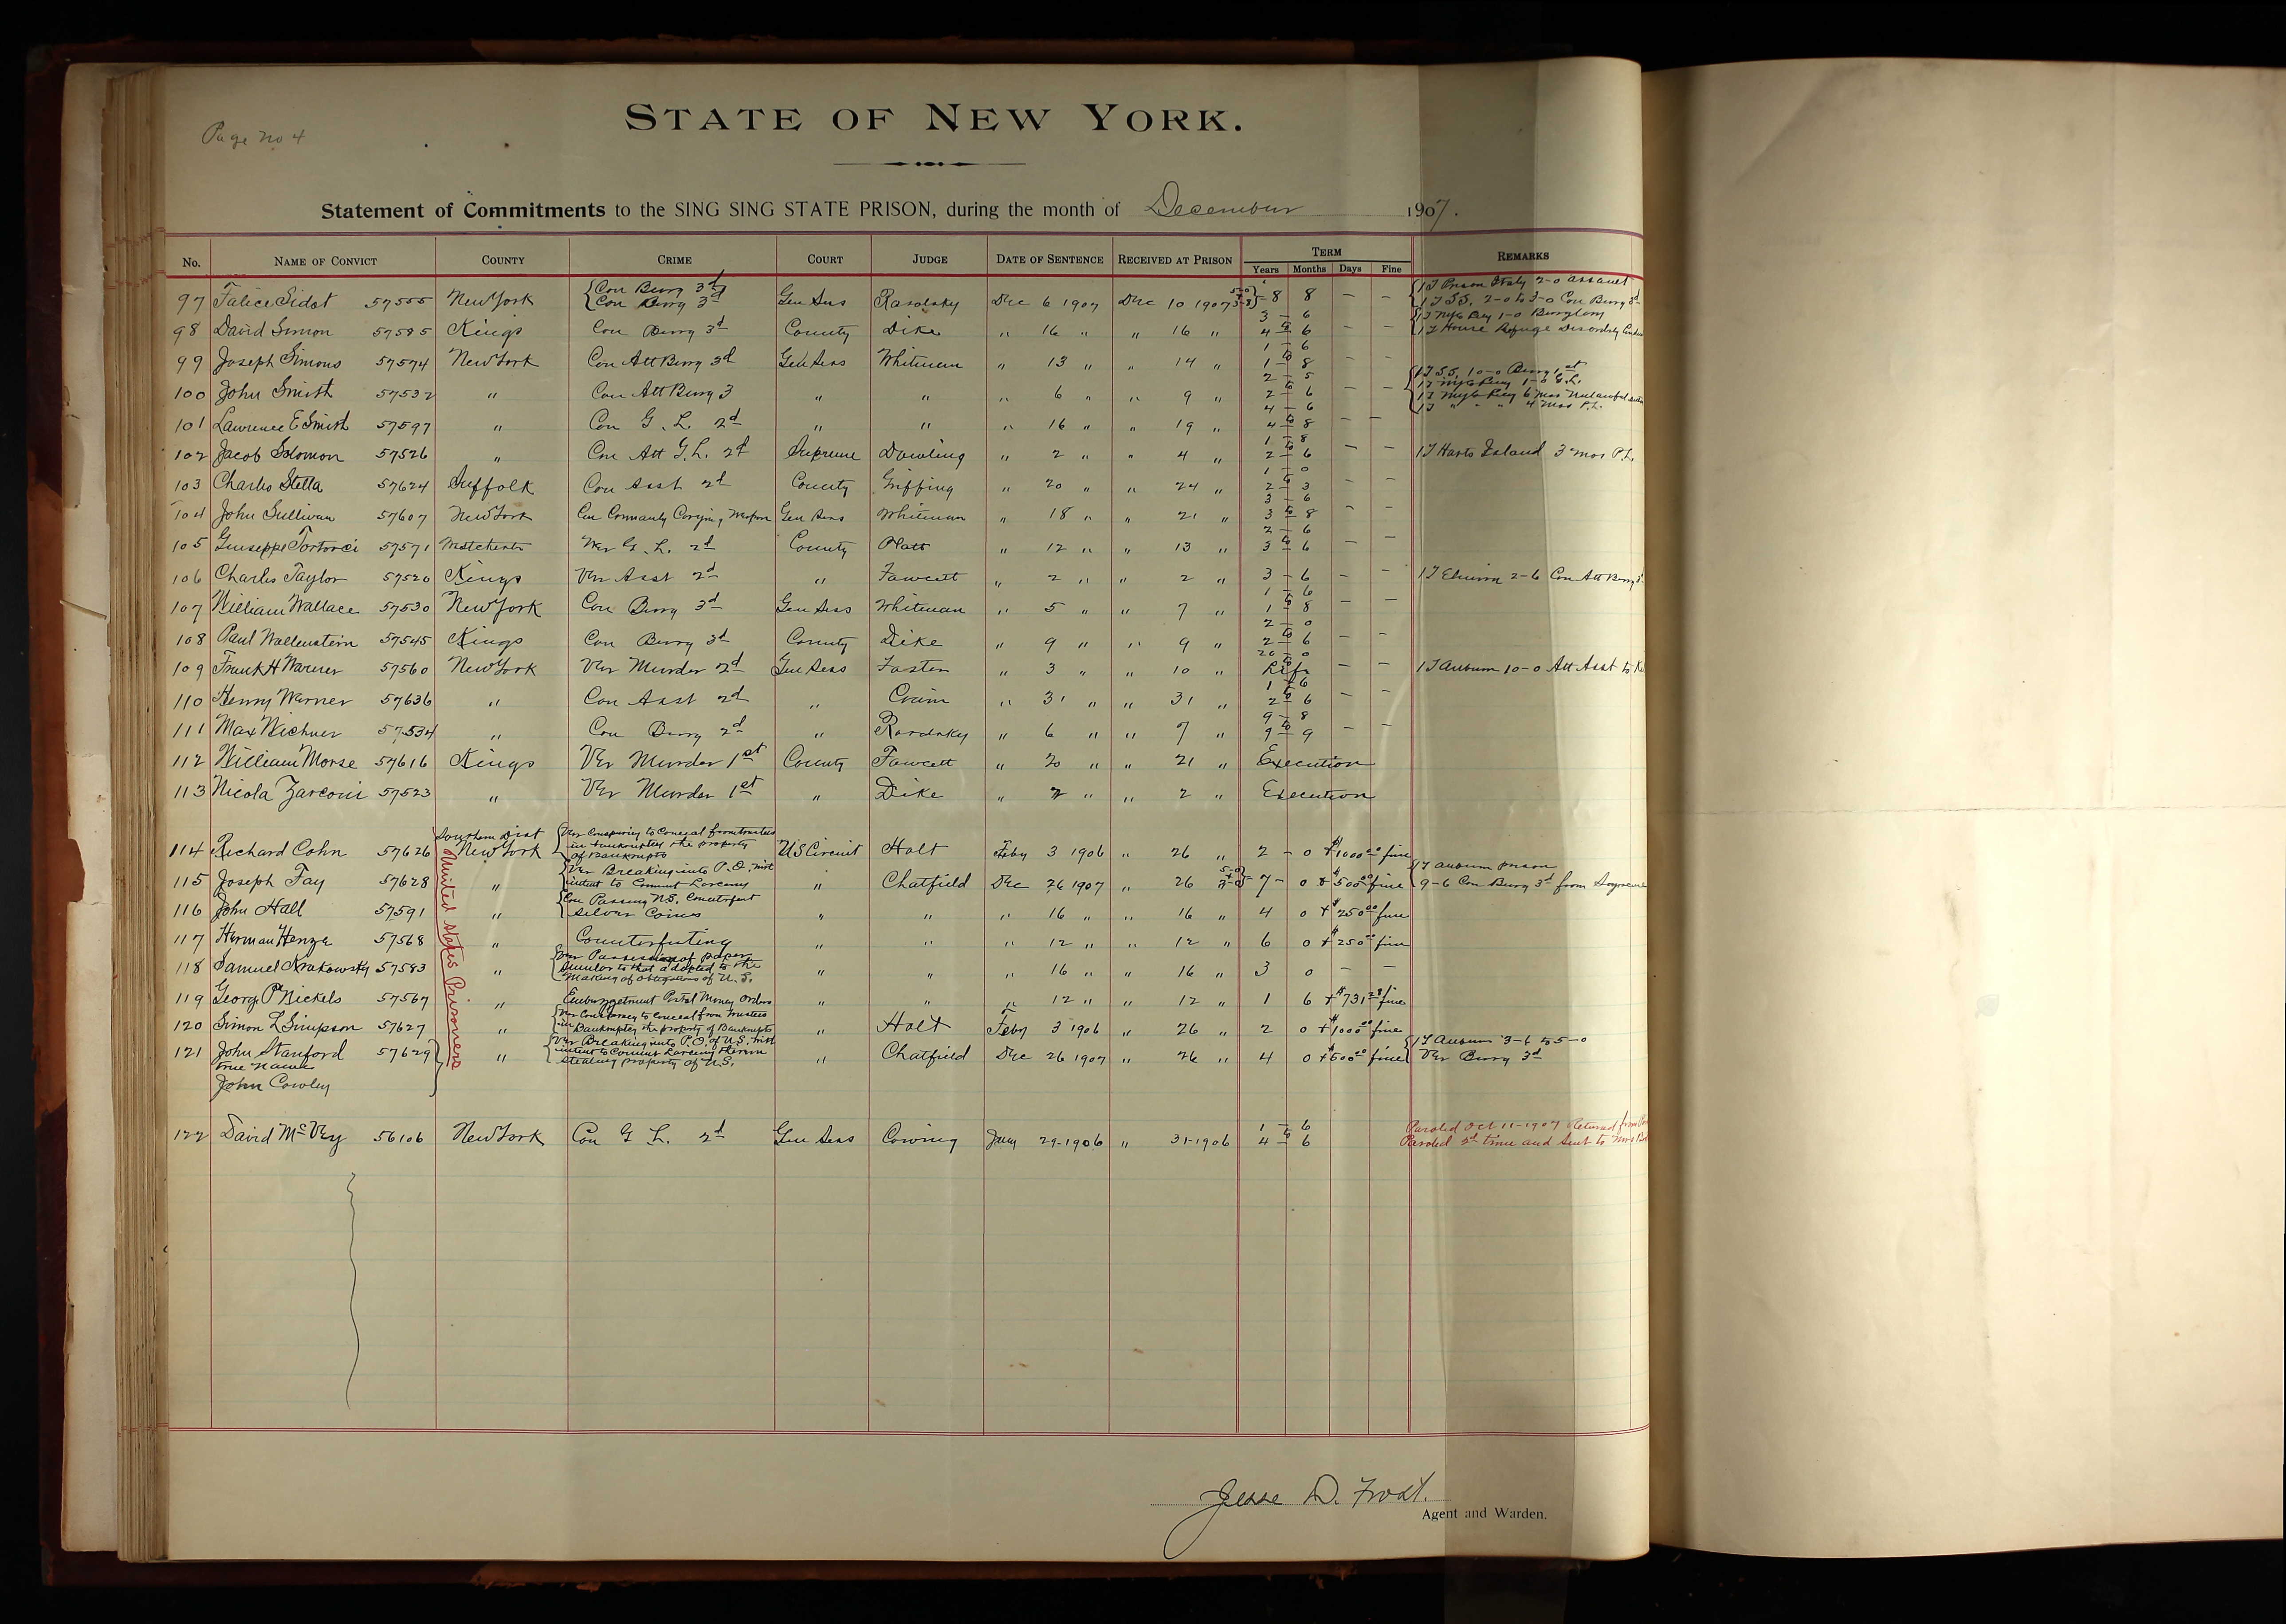 Page no 4
STATE OF NEW YORK.
Statement of Commitments to the SING SING STATE PRISON, during the month of December 1907.
No. NAME OF CONVICT COUNTY CRIME COURT JUDGE DATE OF SENTENCE RECEIVED AT PRISON TERM REMARKS
Years Months Days Fine
97 Sidot 57555 New York { Con Burg 3d Con Burg 3d Gen Sess Rosalsky Dec 6 1907 Dec 10 1907 8 8 — — { 1T Prison Italy 2-0 Assault 1T S.S. 2-0 to 3-0 Con Burg 3d
98 David Simon 57585 Kings Con Burg 3d County Dike " 16 " " 16 " 3 - 6 to 4 - 6 — —
99 Joseph Simons 57574 New York Con Att Burg 3d Gen Sess Whitman " 13 " " 14 " 1 - 6 to 1 - 8 — —
100 John Smith 57532 " Con Att Burg 3 " " " 6 " " 9 " 2 - 5 to 2 - 6 — —
101 Lawrence E Smith 57597 " Con G. L. 2d " " " 16 " " 19 " 4 - 6 to 4 - 8 — —
102 Jacob Solomon 57526 " Con Att G. L. 2d Supreme Dowling " 2 " " 4 " 1 - 8 to 2 - 6 — — 1T Harts Island 3 mos P.L.
103 Charles Stella 57624 Suffolk Con Asst 2d County Griffing " 20 " " 24 " 1 - 0 to 2 - 3 — —
104 John Sullivan 57607 New York Con Carrying Weapon Gen Sess Whitman " 18 " " 21 " 3 - 6 to 3 - 8 — —
105 Giuseppe Tortorici 57571 Westchester Ver G. L. 2d County Platt " 12 " " 13 " 2 - 6 to 3 - 6 — —
106 Charles Taylor 57520 Kings Ver Asst 2d " Fawcett " 2 " " 2 " 3 - 6 — — 1T Elmira 2-6 Con Att Burg 3d
107 William Wallace 57530 New York Con Burg 3d Gen Sess Whitman " 5 " " 7 " 1 - 6 to 1 - 8 — —
108 Paul Wallenstein 57545 Kings Con Burg 3d County Dike " 9 " " 9 " 2 - 0 to 2 - 6 — —
109 Frank H Warner 57560 New York Ver Murder 2d Gen Sess Foster " 3 " " 10 " 20 - 0 to Life — — 1T Auburn 10-0 Att Asst to
110 Henry Warner 57636 " Con Asst 2d " Crain " 31 " " 31 " 1 - 6 to 2 - 6 — —
111 Max Wichner 57534 " Con Burg 2d " Rosalsky " 6 " " 7 " 9 - 8 to 9 - 9 — —
112 William Morse 57616 Kings Ver Murder 1st County Fawcett " 20 " " 21 " Execution
113 Nicola Zarconi 57523 " Ver Murder 1st " Dike " 2 " " 2 " Execution
United States Prisoners
114 Richard Cohn 57626 Southern Dist New York { Ver Conspiring to Conceal from trustees in bankruptcy the property of Bankrupts U S Circuit Holt Feby 3 1906 " 26 " 2 - 0 + $1000.00 fine
115 Joseph Fay 57628 " { Ver Breaking into P.O. with intent to Commit Larceny " Chatfield Dec 26 1907 " 26 " 7 - 0 + $500.00 fine { 1T Auburn prison 9-6 Con Burg 3d from
116 John Hall 57591 " { Con Passing U.S. Counterfeit Silver Coins " " " 16 " " 16 " 4 0 + $250.00 fine
117 Herman Henze 57568 " Counterfeiting " " " 12 " " 12 " 6 0 + $250.00 fine
118 Samuel Krakowsky 57583 " { Ver Possession of paper Similar to that adopted to the Making of obligations of U. S. " " " 16 " " 16 " 3 0 — —
119 George P Nickels 57567 " Embezzlement Postal Money Orders " " " 12 " " 12 " 1 6 + $731.28 fine
120 Simon L Simpson 57627 " { Ver Conspiracy to Conceal from Trustees in Bankruptcy the property of Bankrupts " Holt Feby 3 1906 " 26 " 2 0 + $1000 fine
121 John Stanford 57629 " { Ver Breaking into P.O. of U.S. with intent to Commit Larceny therein Stealing property of U.S. " Chatfield Dec 26 1907 " 26 " 4 0 + $500.00 fine { 1T Auburn 3-6 to 5-0 Ver Burg 3d
true name
John Cowley
122 David McVey 56106 New York Con G L. 2d Gen Sess Cowing Jany 29-1906 " 31-1906 1 - 6 to 4 - 6 Paroled Oct 11-1907 Returned from
Paroled 2d time and Sent to
Jesse D. Frost.
Agent and Warden.